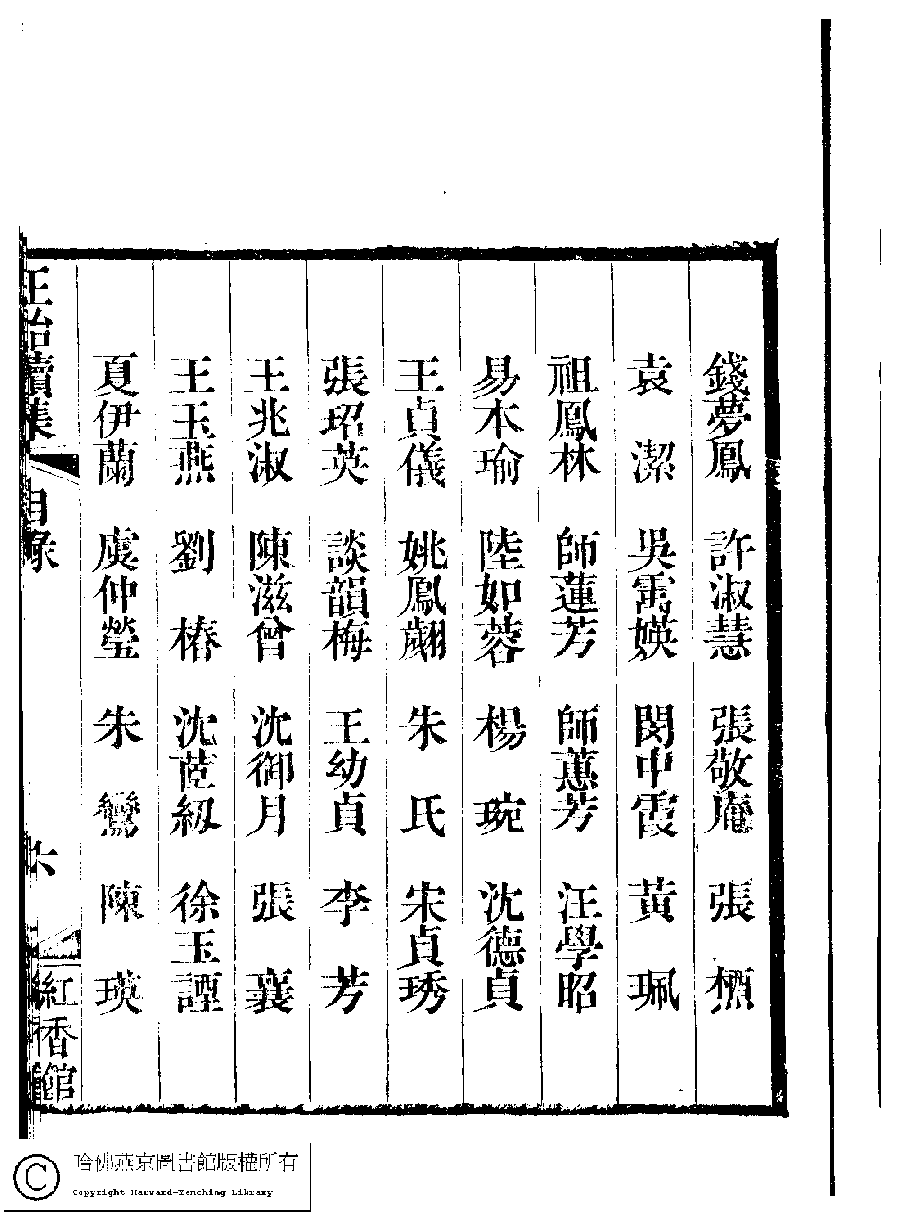 錢夢鳳 許淑慧 張敬庵 張 槚
袁 潔 吳寯媖 閔中霞 黃 珮
祖鳳林 師蓮芳 師蕙芳 汪學昭
易木瑜 陸如蓉 楊 琬 沈德貞
王貞儀 姚鳳翽 朱 氏 宋貞琇
張玿英 談韻梅 王幼貞 李 芳
王兆淑 陳滋曾 沈御月 張 襄
王玉燕 劉 椿 沈茝紉 徐玉譚
夏伊蘭 虞仲瑩 朱 鸞 陳 瑛
正始續集 目錄 六 紅香館
哈佛燕京圖書館版權所有
Copyright Harvard-Yenching Library